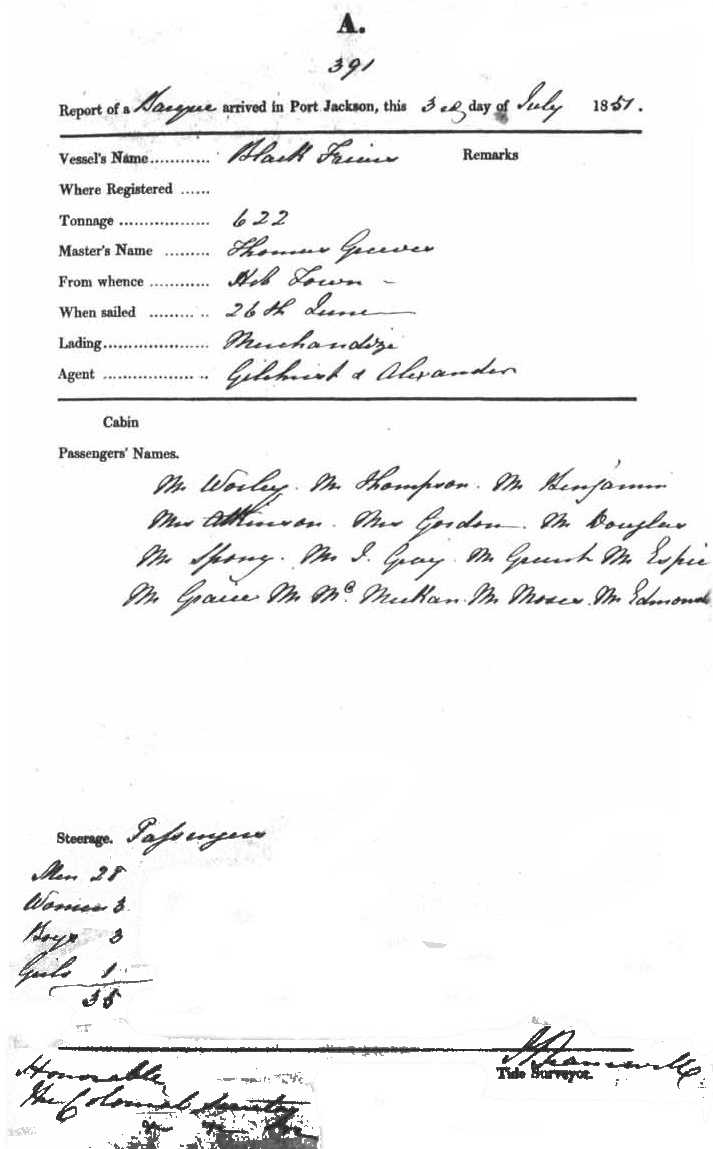 A.
391
Report of a Barque arrived in Port Jackson, this 3rd day of July 1851.
Vessel's Name............ Black Friar Remarks
Where Registered ......
Tonnage .................. 622
Master's Name ......... Thomas Greeves
From whence ............ Hob Town –
When sailed ......... .. 26th June
Lading..................... Merchandize
Agent .................. .. Gilchrist & Alexander
Cabin
Passengers' Names.
Mr Worley. Mr Thompson. Mr Benjamin
Mrs Atkinson. Mrs Gordon. Mr Douglas
Mr Spong. Mr J. Gray. Mr Mr Espie
Mr Mr Mc Meekan. Mr Moses. Mr Edmonds
Steerage. Passengers
Men 28
Women 3
Boys 3
Girls 1
35
Tide Surveyor.
Honorable
The Colonial Secretary